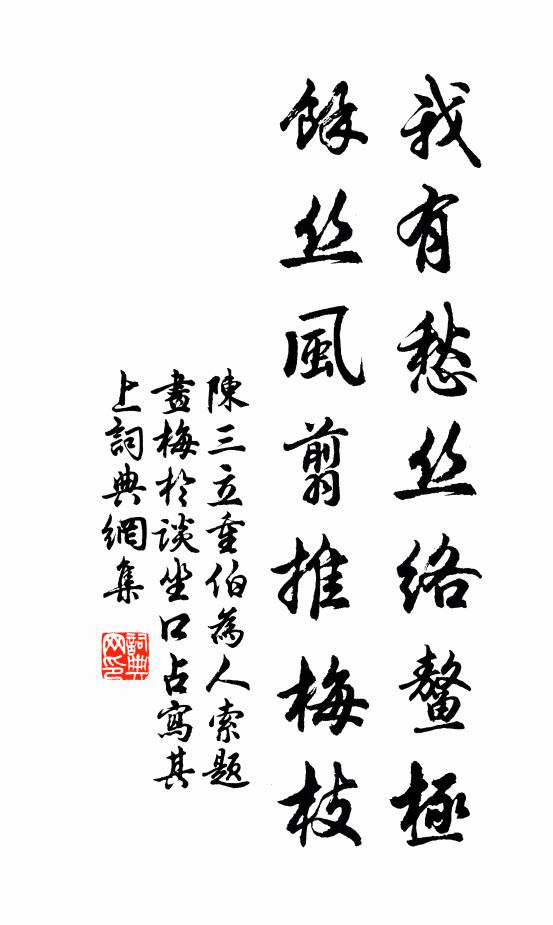 我有愁丝络鳌極
餘丝風剪推梅枝
陳三立重伯為人索题
畫梅於谈坐口占寫其
上詞典網集
詞典网印